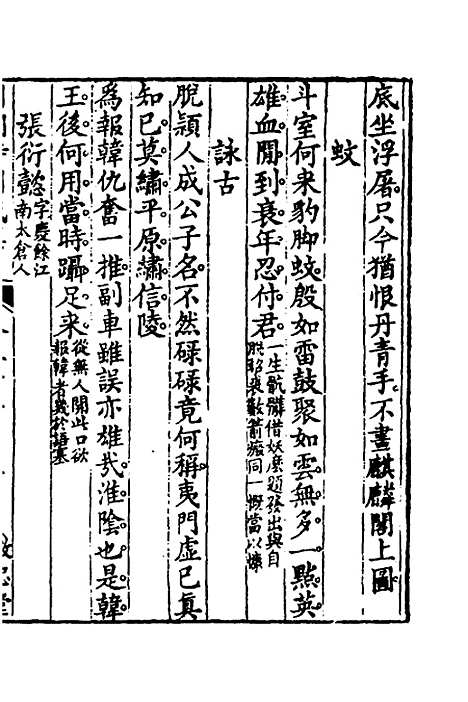 底坐浮屠只今猶恨丹青手不畫麒麟閣上圖
蚊
斗室何來豹脚蚊殷如雷鼓聚如雲無多一點英
雄血閒到衰年忍付君一生骯髒借妖麽題發出與自
數箭瘢同一慨當以慷
詠古
脫頴人成公子名不然碌碌竟何稱夷門虛已真
知已莫繡平原繡信陵
為報韓仇奮一推副車雖誤亦雄哉淮隂也是韓
王後何用當時躡足來從無人開此口欲
報韓者幾於語塞
張衍懿字慶餘江
南太倉人